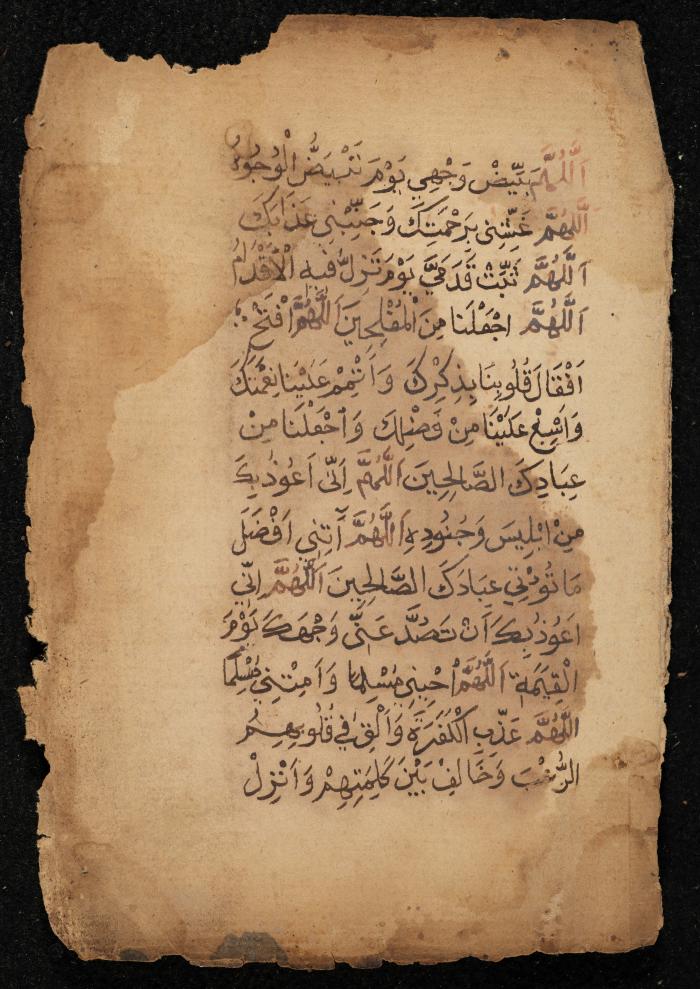 اَللّٰهُمَّ بَيِّضْ وَجْهِي يَوْمَ تَبْيَضُّ الْوُجُوْهُ
اَللّٰهُمَّ غَشِّنِي بِرَحْمَتِكَ وَجَنِّبْنِي عَذَابَكَ
اَللّٰهُمَّ ثَبِّتْ قَدَمَيَّ يَوْمَ تَزِلُّ فِيهِ الْأَقْدَامُ
اَللّٰهُمَّ اجْعَلْنَا مِنَ الْمُفْلِحِينَ اَللّٰهُمَّ افْتَحْ
اَقْفَالَ قُلُوبِنَا بِذِكْرِكَ وَاَتْمِمْ عَلَيْنَا نِعْمَتَكَ
وَاَسْبِغْ عَلَيْنَا مِنْ فَضْلِكَ وَاجْعَلْنَا مِنْ
عِبَادِكَ الصَّالِحِينَ اَللّٰهُمَّ اِنِّي اَعُوذُ بِكَ
مِنْ اِبْلِيسَ وَجُنُودِهِ اَللّٰهُمَّ آتِنِي اَفْضَلَ
مَا تُؤْتِي عِبَادَكَ الصَّالِحِينَ اَللّٰهُمَّ اِنِّي
اَعُوذُ بِكَ اَنْ تَصُدَّ عَنِّي وَجْهَكَ يَوْمَ
الْقِيٰمَةِ اَللّٰهُمَّ اَحْيِنِي مُسْلِمًا وَاَمِتْنِي مُسْلِمًا
اَللّٰهُمَّ عَذِّبِ الْكَفَرَةَ وَاَلْقِ فِي قُلُوبِهِمُ
الرُّعْبَ وَخَالِفْ بَيْنَ كَلِمَتِهِمْ وَاَنْزِلْ